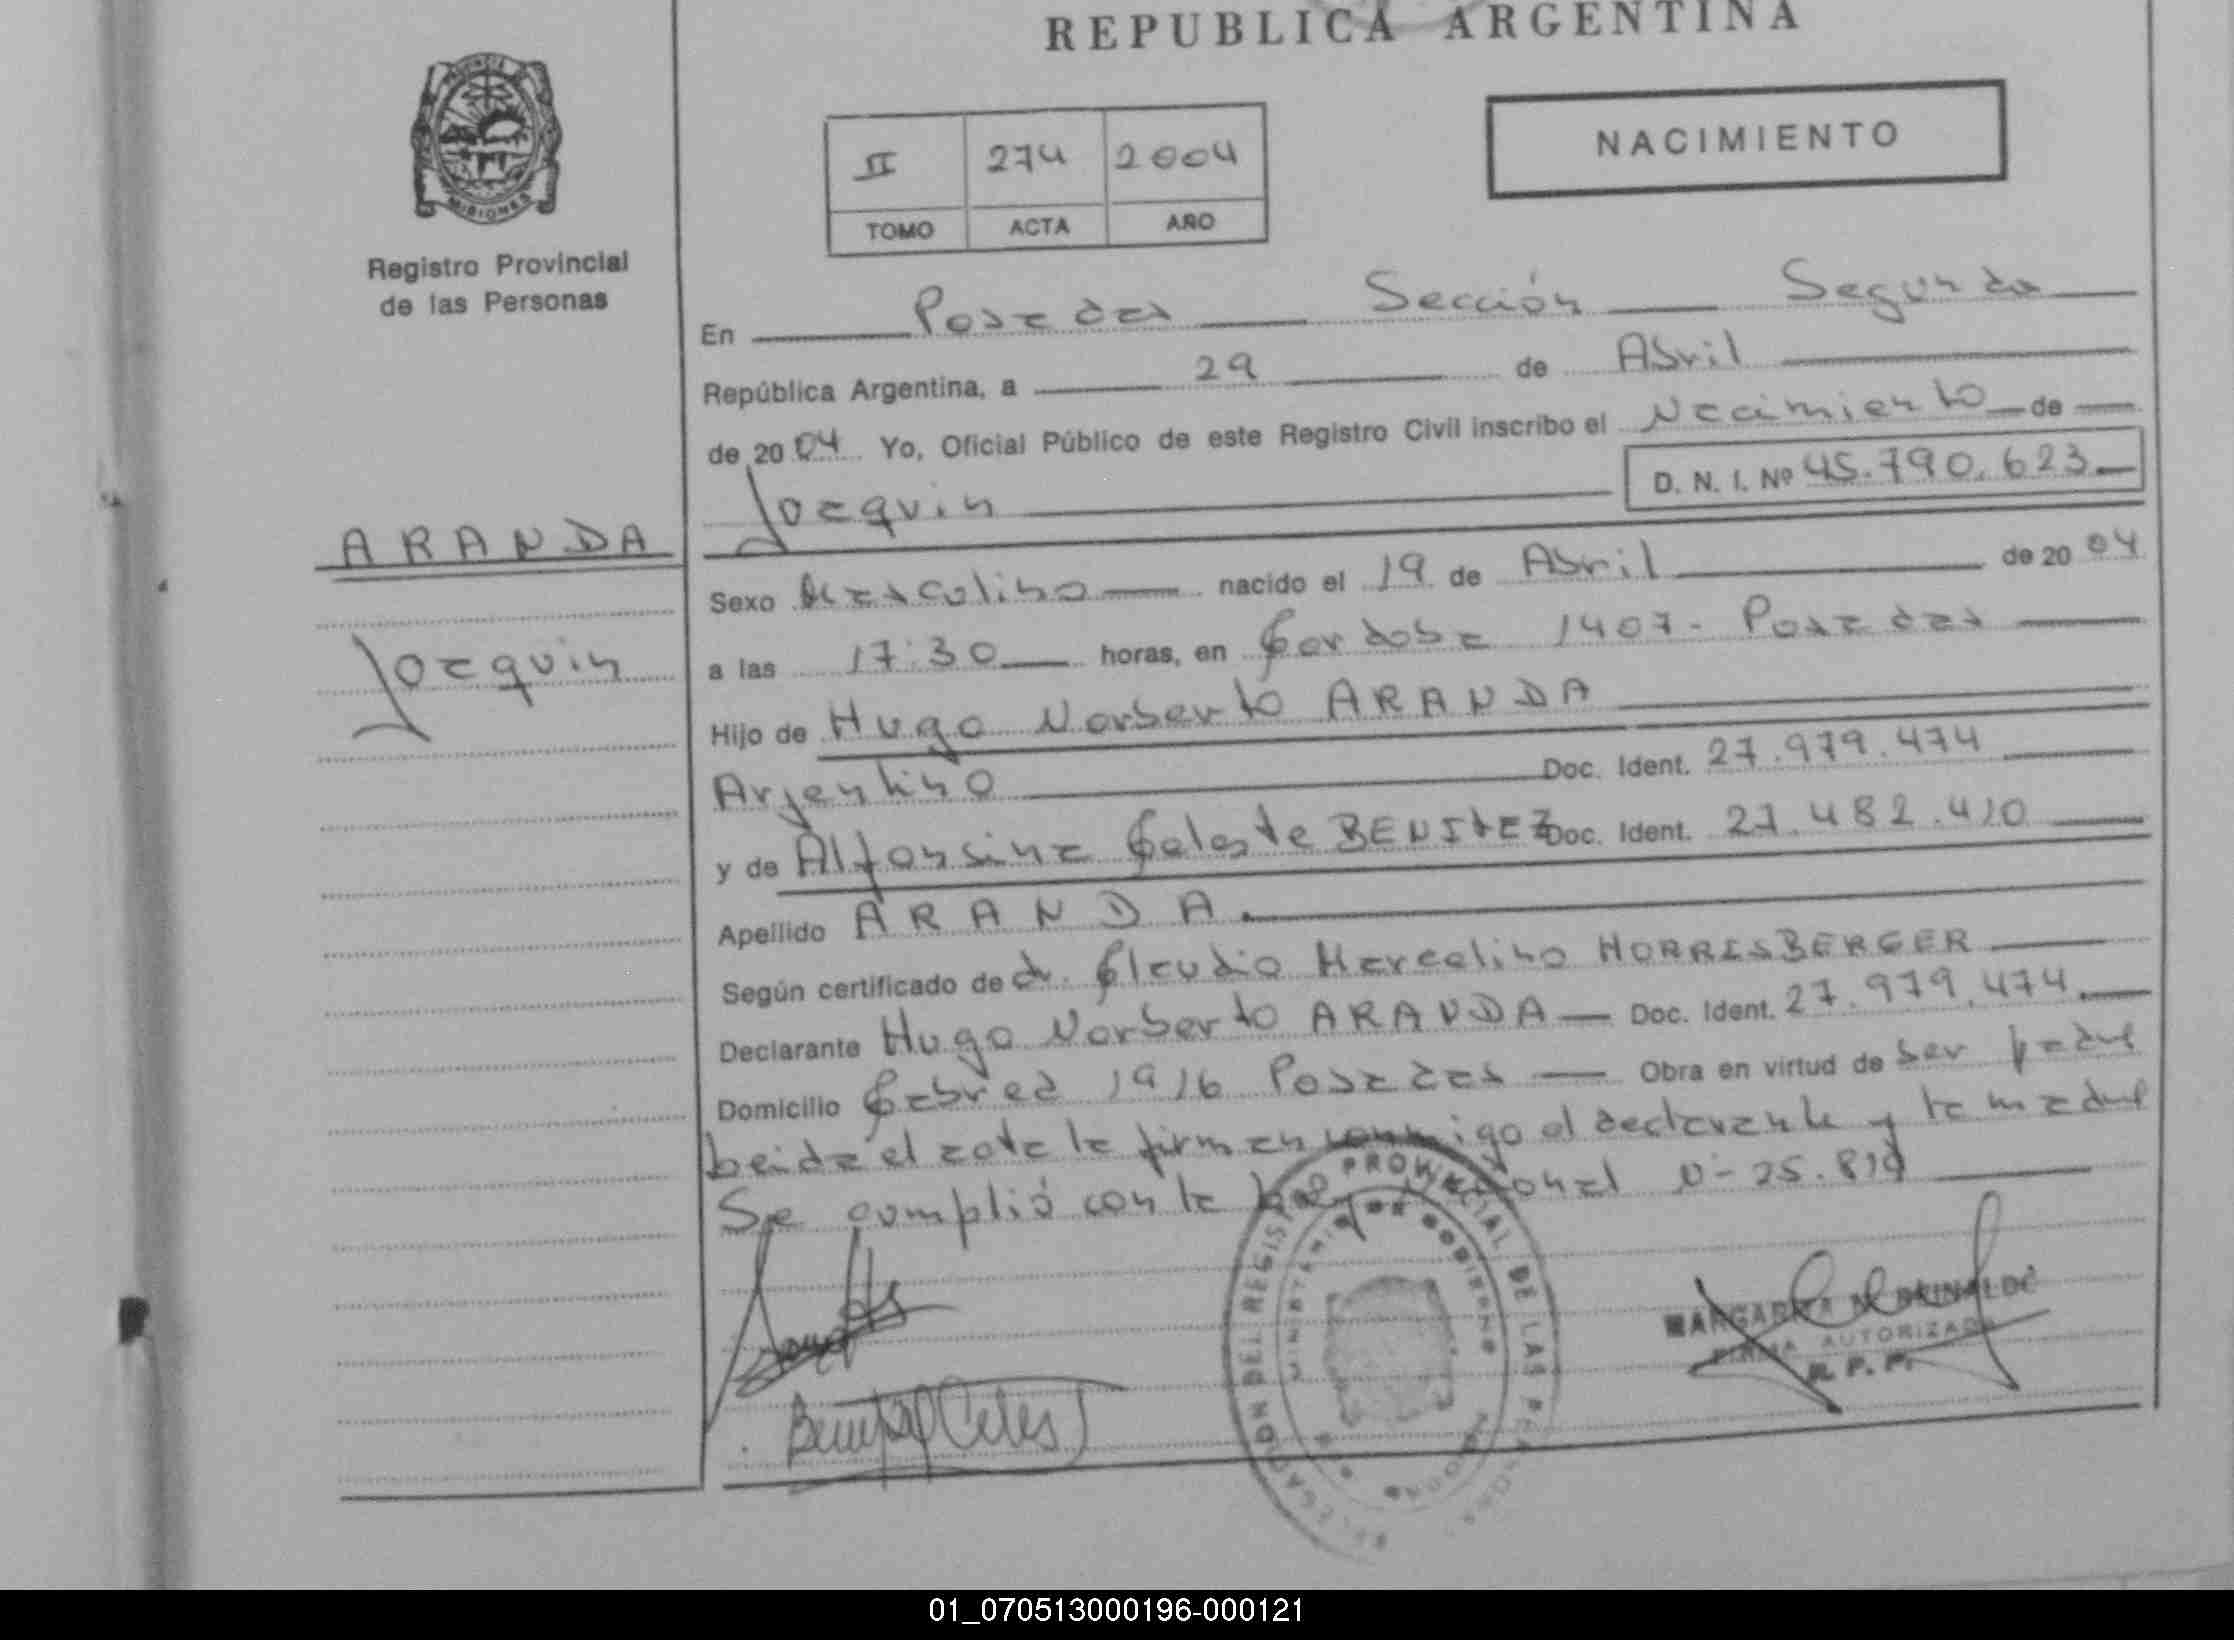 REPUBLICA ARGENTINA
PROVINCIA DE
MISIONES
Registro Provincial
de las Personas
II 274 2004
TOMO ACTA AÑO
NACIMIENTO
En Posadas Sección Segunda
República Argentina, a 29 de Abril
de 2004 Yo, Oficial Público de este Registro Civil inscribo el Nacimiento de
Joaquin D. N. I. Nº 45.790.623
ARANDA
Joaquin
Sexo Masculino nacido el 19 de Abril de 2004
a las 17:30 horas, en Cordoba 1407- Posadas
Hijo de Hugo Norberto ARANDA
Argentino Doc. Ident. 27.979.474
y de Alfonsina Celeste BENITEZ Doc. Ident. 27.482.410
Apellido ARANDA.
Según certificado de dr. Claudio Marcelino HORRISBERGER
Declarante Hugo Norberto ARANDA Doc. Ident. 27.979.474.
Domicilio Cabred 1916 Posadas Obra en virtud de ser padre
Leida el acta la firman conmigo el declarante y la madre
Se cumplió con la N- 25.819
DELEGACION DEL REGISTRO PROVINCIAL DE LAS PERSONAS
MINISTERIO DE GOBIERNO
MARGARITA
FIRMA AUTORIZADA
R. P. P.
01_070513000196-000121